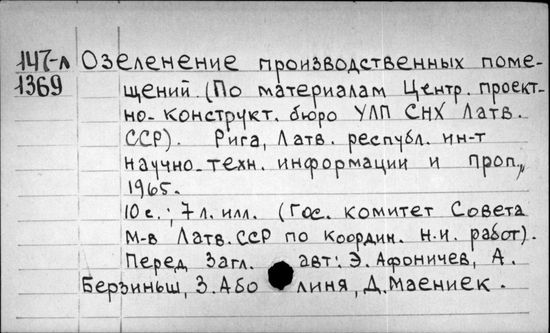 147-л Озеленение производственных поме-
1369 щений. (По материалам Центр. проект-
но-конструкт. бюро УЛП СНХ Латв.
ССР). Рига, Латв. республ. ин-т
научно-техн. информации и проп.,
1965.
10 с.; 7 л. илл. (Гос. комитет Совета
М-в Латв. ССР по координ. н.и. работ).
Перед Загл. авт.: Э. Афоничев, А.
Берзиньш, З. Або линя, Д. Маениек.